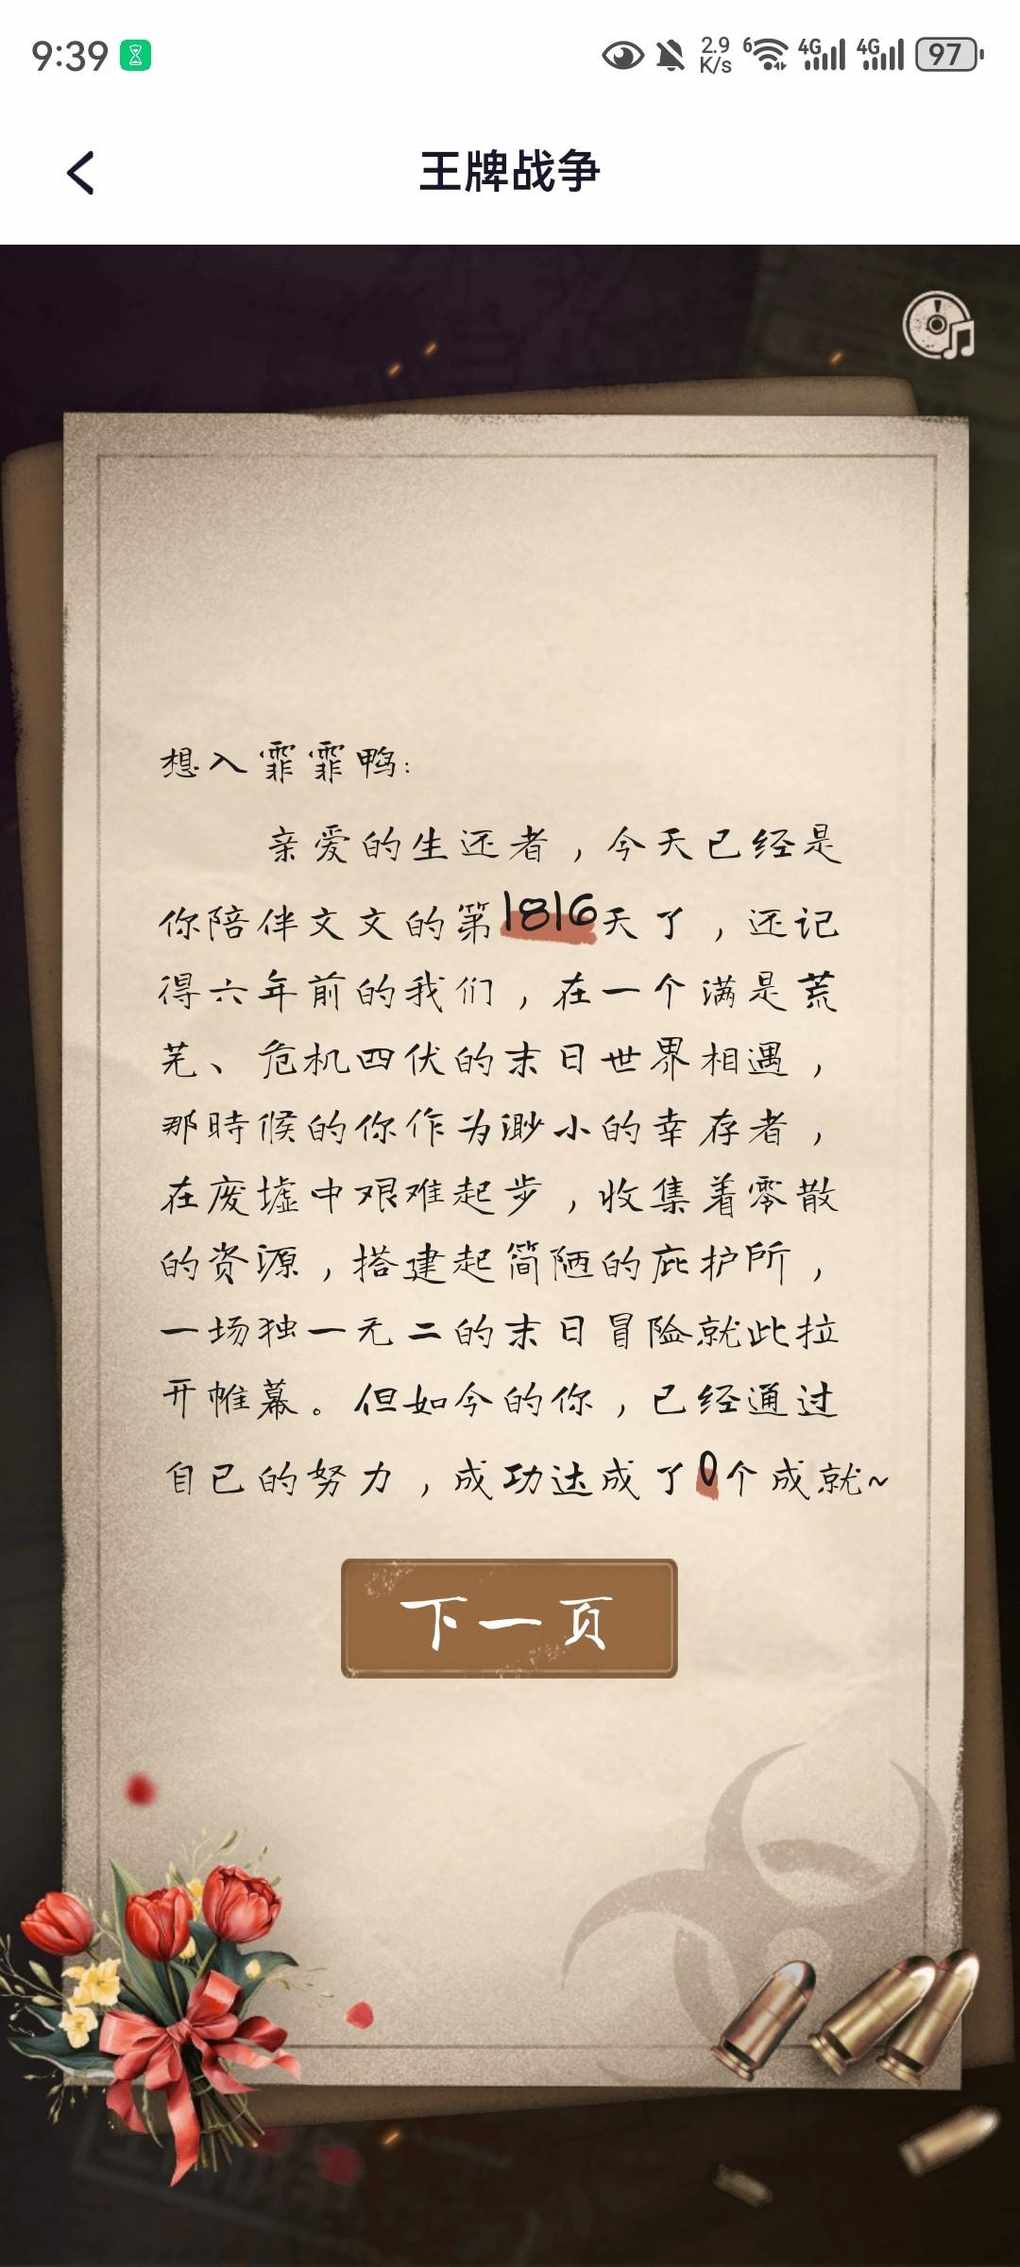 9:39
2.9 K/s 6 4G 4G 97
王牌战争
想入霏霏鸭：
亲爱的生还者，今天已经是
你陪伴文文的第1816天了，还记
得六年前的我们，在一个满是荒
芜、危机四伏的末日世界相遇，
那時候的你作为渺小的幸存者，
在废墟中艰难起步，收集着零散
的资源，搭建起简陋的庇护所，
一场独一无二的末日冒险就此拉
开帷幕。但如今的你，已经通过
自己的努力，成功达成了0个成就~
下一页